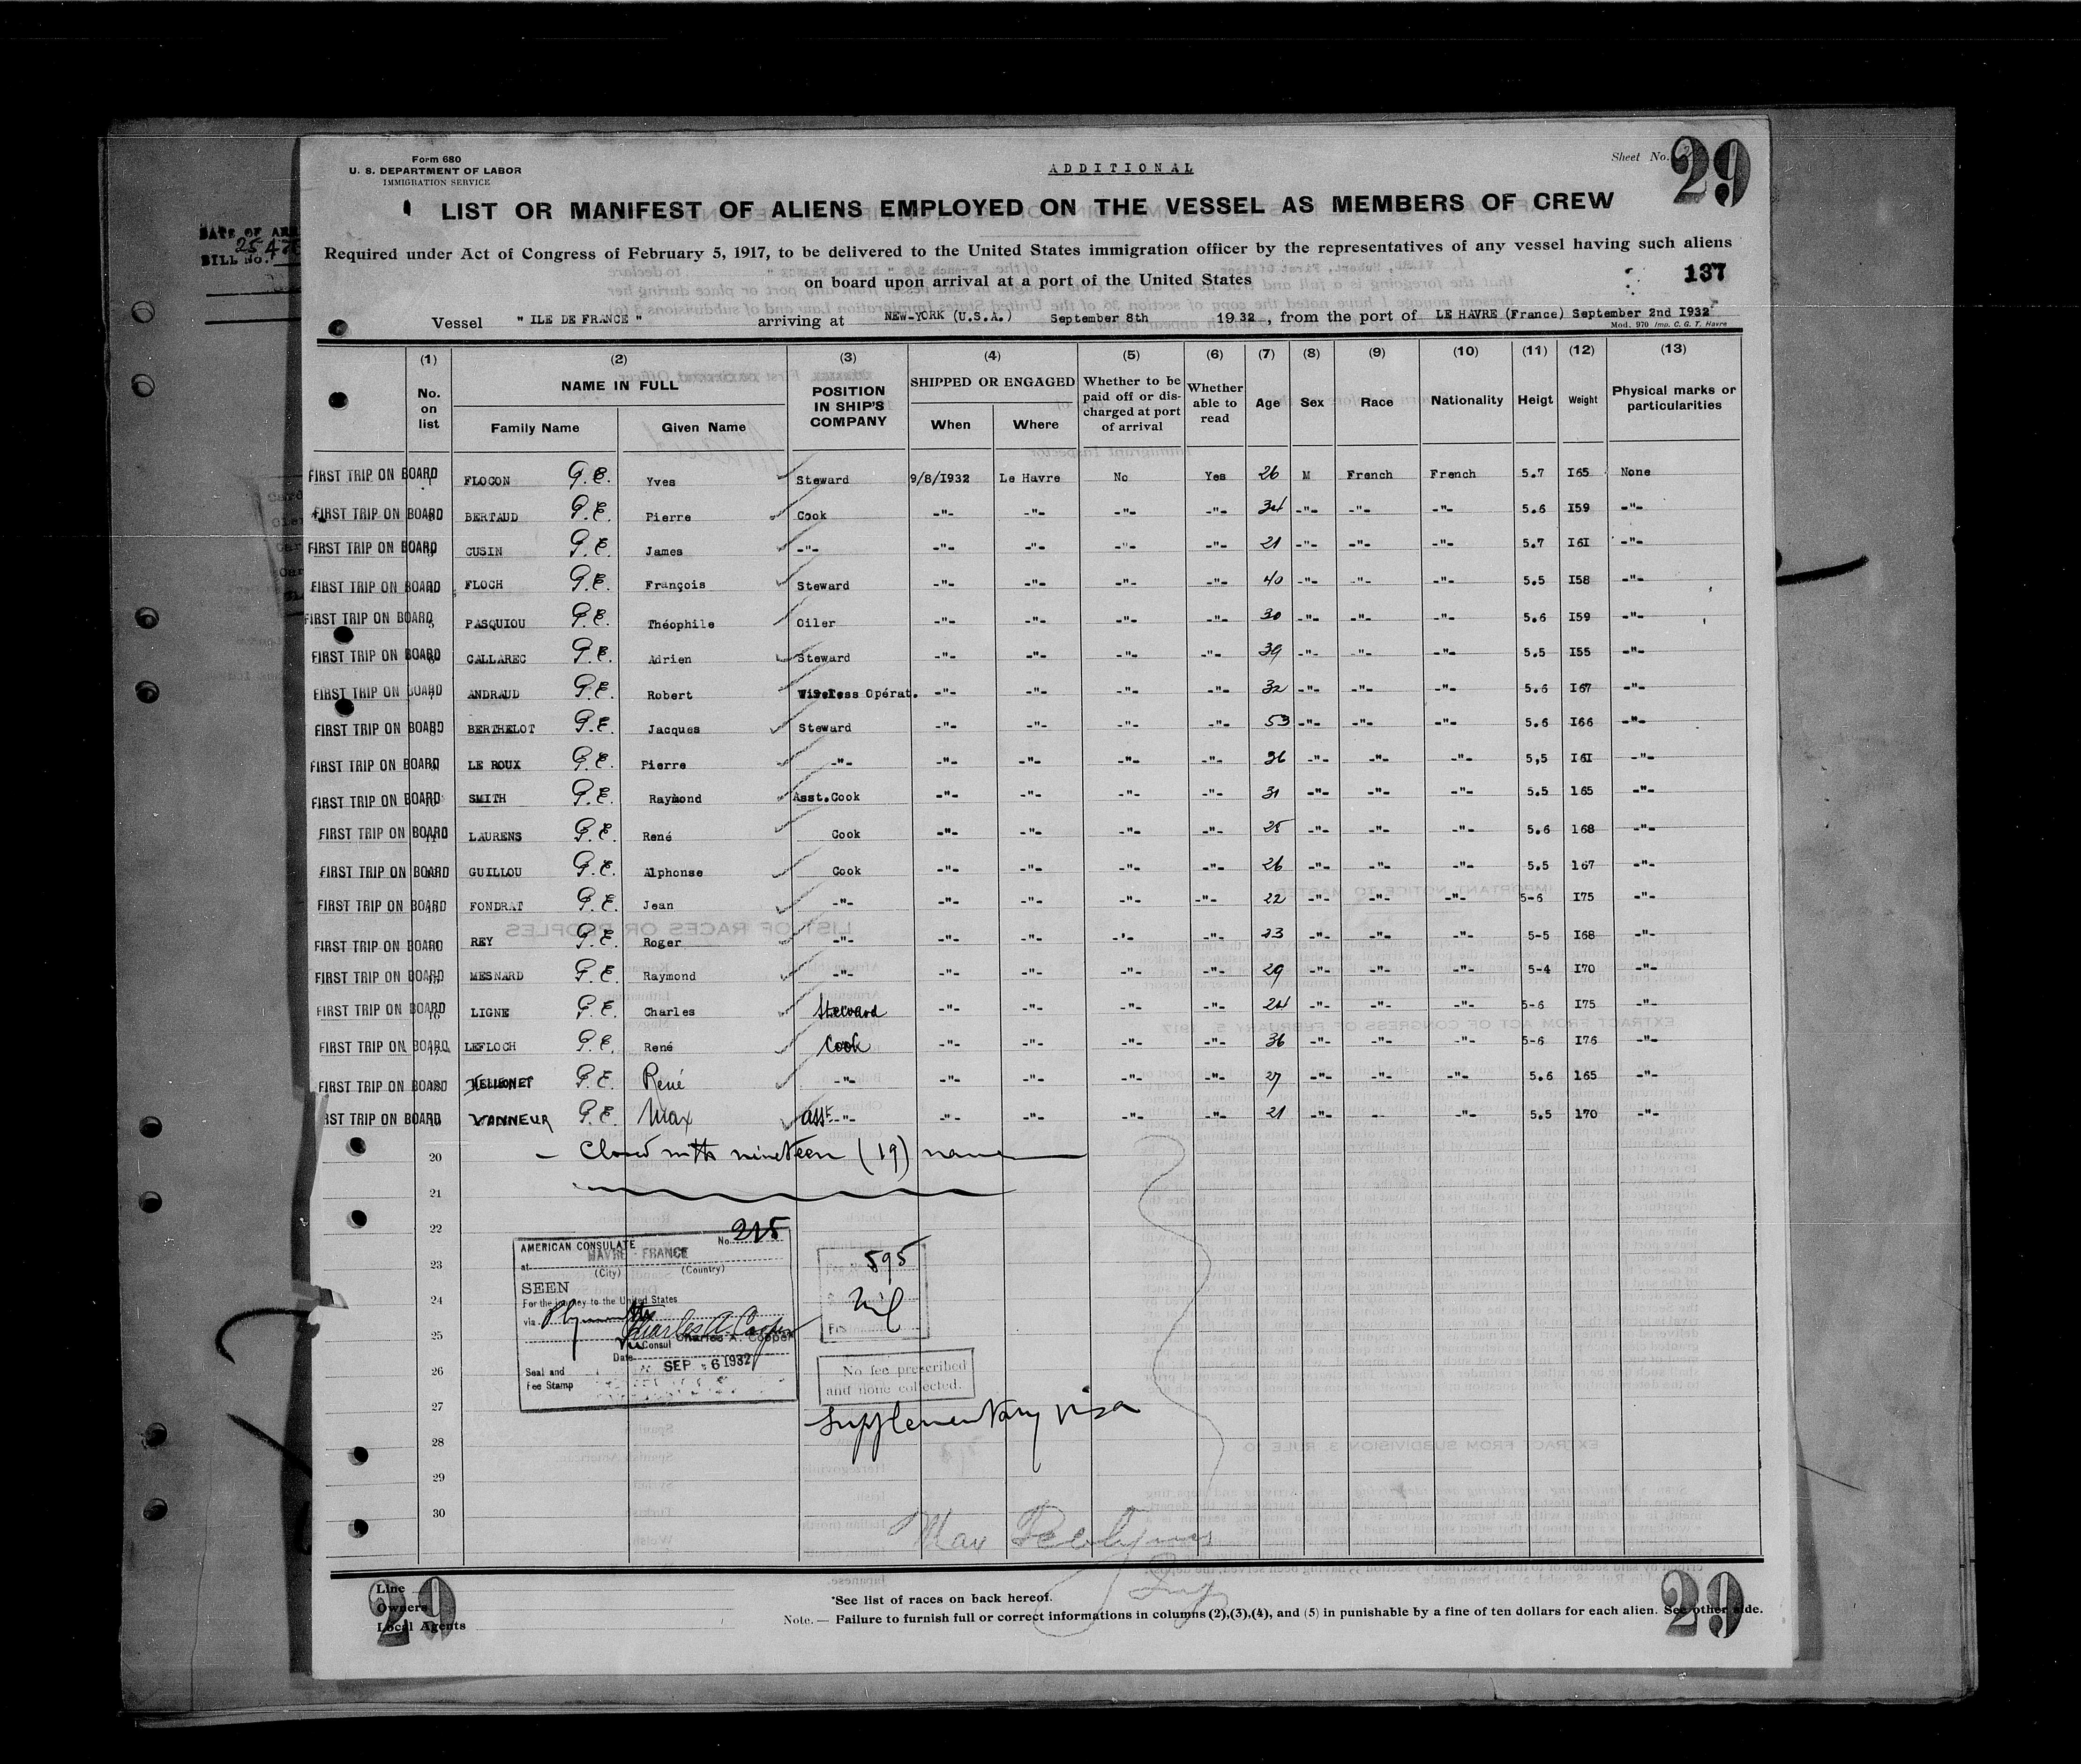 Form 680
U. S. DEPARTMENT OF LABOR
IMMIGRATION SERVICE
ADDITIONAL
Sheet No.
29
LIST OR MANIFEST OF ALIENS EMPLOYED ON THE VESSEL AS MEMBERS OF CREW
Required under Act of Congress of February 5, 1917, to be delivered to the United States immigration officer by the representatives of any vessel having such aliens
on board upon arrival at a port of the United States
137
Vessel " ILE DE FRANCE " arriving at NEW-YORK (U.S.A.) September 8th 1932, from the port of LE HAVRE (France) September 2nd I932
Mod. 970 Imp. C. G. T. Havre
(1) (2) (3) (4) (5) (6) (7) (8) (9) (10) (11) (12) (13)
No. on list NAME IN FULL Family Name Given Name POSITION IN SHIP'S COMPANY SHIPPED OR ENGAGED When Where Whether to be paid off or discharged at port of arrival Whether able to read Age Sex Race Nationality Heigt Weight Physical marks or particularities
FIRST TRIP ON BOARD 1 FLOCON G.E. Yves Steward 9/8/I932 Le Havre No Yes 26 M French French 5.7 I65 None
FIRST TRIP ON BOARD BERTAUD G.E. Pierre Cook -"- -"- -"- -"- 34 -"- -"- -"- 5.6 I59 -"-
FIRST TRIP ON BOARD CUSIN G.E. James -"- -"- -"- -"- -"- 21 -"- -"- -"- 5.7 I6I -"-
FIRST TRIP ON BOARD FLOCH G.E. François Steward -"- -"- -"- -"- 40 -"- -"- -"- 5.5 I58 -"-
FIRST TRIP ON BOARD 5 PASQUIOU G.E. Théophile Oiler -"- -"- -"- -"- 30 -"- -"- -"- 5.6 I59 -"-
FIRST TRIP ON BOARD CALLAREC G.E. Adrien Steward -"- -"- -"- -"- 39 -"- -"- -"- 5.5 I55 -"-
FIRST TRIP ON BOARD 7 ANDRAUD G.E. Robert Wireless Opérat. -"- -"- -"- -"- 32 -"- -"- -"- 5.6 I67 -"-
FIRST TRIP ON BOARD 8 BERTHELOT G.E. Jacques Steward -"- -"- -"- -"- 53 -"- -"- -"- 5.6 I66 -"-
FIRST TRIP ON BOARD LE ROUX G.E. Pierre -"- -"- -"- -"- -"- 36 -"- -"- -"- 5,5 I6I -"-
FIRST TRIP ON BOARD SMITH G.E. Raymond Asst.Cook -"- -"- -"- -"- 31 -"- -"- -"- 5.5 165 -"-
FIRST TRIP ON BOARD 11 LAURENS G.E. René Cook -"- -"- -"- -"- 25 -"- -"- -"- 5.6 168 -"-
FIRST TRIP ON BOARD GUILLOU G.E. Alphonse Cook -"- -"- -"- -"- 26 -"- -"- -"- 5.5 167 -"-
FIRST TRIP ON BOARD FONDRAT G.E. Jean -"- -"- -"- -"- -"- 22 -"- -"- -"- 5-6 I75 -"-
FIRST TRIP ON BOARD REY G.E. Roger -"- -"- -"- -"- -"- 23 -"- -"- -"- 5-5 I68 -"-
FIRST TRIP ON BOARD MESNARD G.E. Raymond -"- -"- -"- -"- -"- 29 -"- -"- -"- 5-4 I70 -"-
FIRST TRIP ON BOARD 16 LIGNE G.E. Charles Steward -"- -"- -"- -"- 24 -"- -"- -"- 5-6 I75 -"-
FIRST TRIP ON BOARD 17 LEFLOCH G.E. René Cook -"- -"- -"- -"- 36 -"- -"- -"- 5-6 I76 -"-
FIRST TRIP ON BOARD G.E. René -"- -"- -"- -"- -"- 27 -"- -"- -"- 5.6 165 -"-
RST TRIP ON BOARD VANNEUR G.E. Max Asst -"- -"- -"- -"- -"- 21 -"- - -"- 5.5 170 -"-
20 — Closed with nineteen (19) names
21
22
23
24
25
26
27
28
29
30
AMERICAN CONSULATE No. 215
at HAVRE - FRANCE
(City) (Country)
SEEN
For the journey to the United States
via Plymouth
Charles A. Cooper
Charles A. Cooper
Vice Consul
Date SEP - 6 1932
Seal and
Fee Stamp
595
Nil
No fee prescribed
and none collected.
Supplementary visa
Max
Line
Owners
Local Agents
29
*See list of races on back hereof.
Note. — Failure to furnish full or correct informations in columns (2),(3),(4), and (5) in punishable by a fine of ten dollars for each alien. See other side.
29
BILL No.